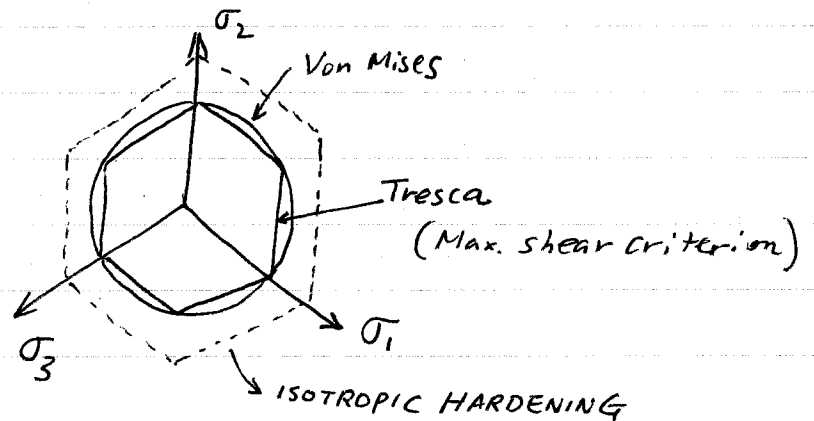 σ₂
Von Mises
Tresca
(Max. shear criterion)
σ₁
σ₃
ISOTROPIC HARDENING